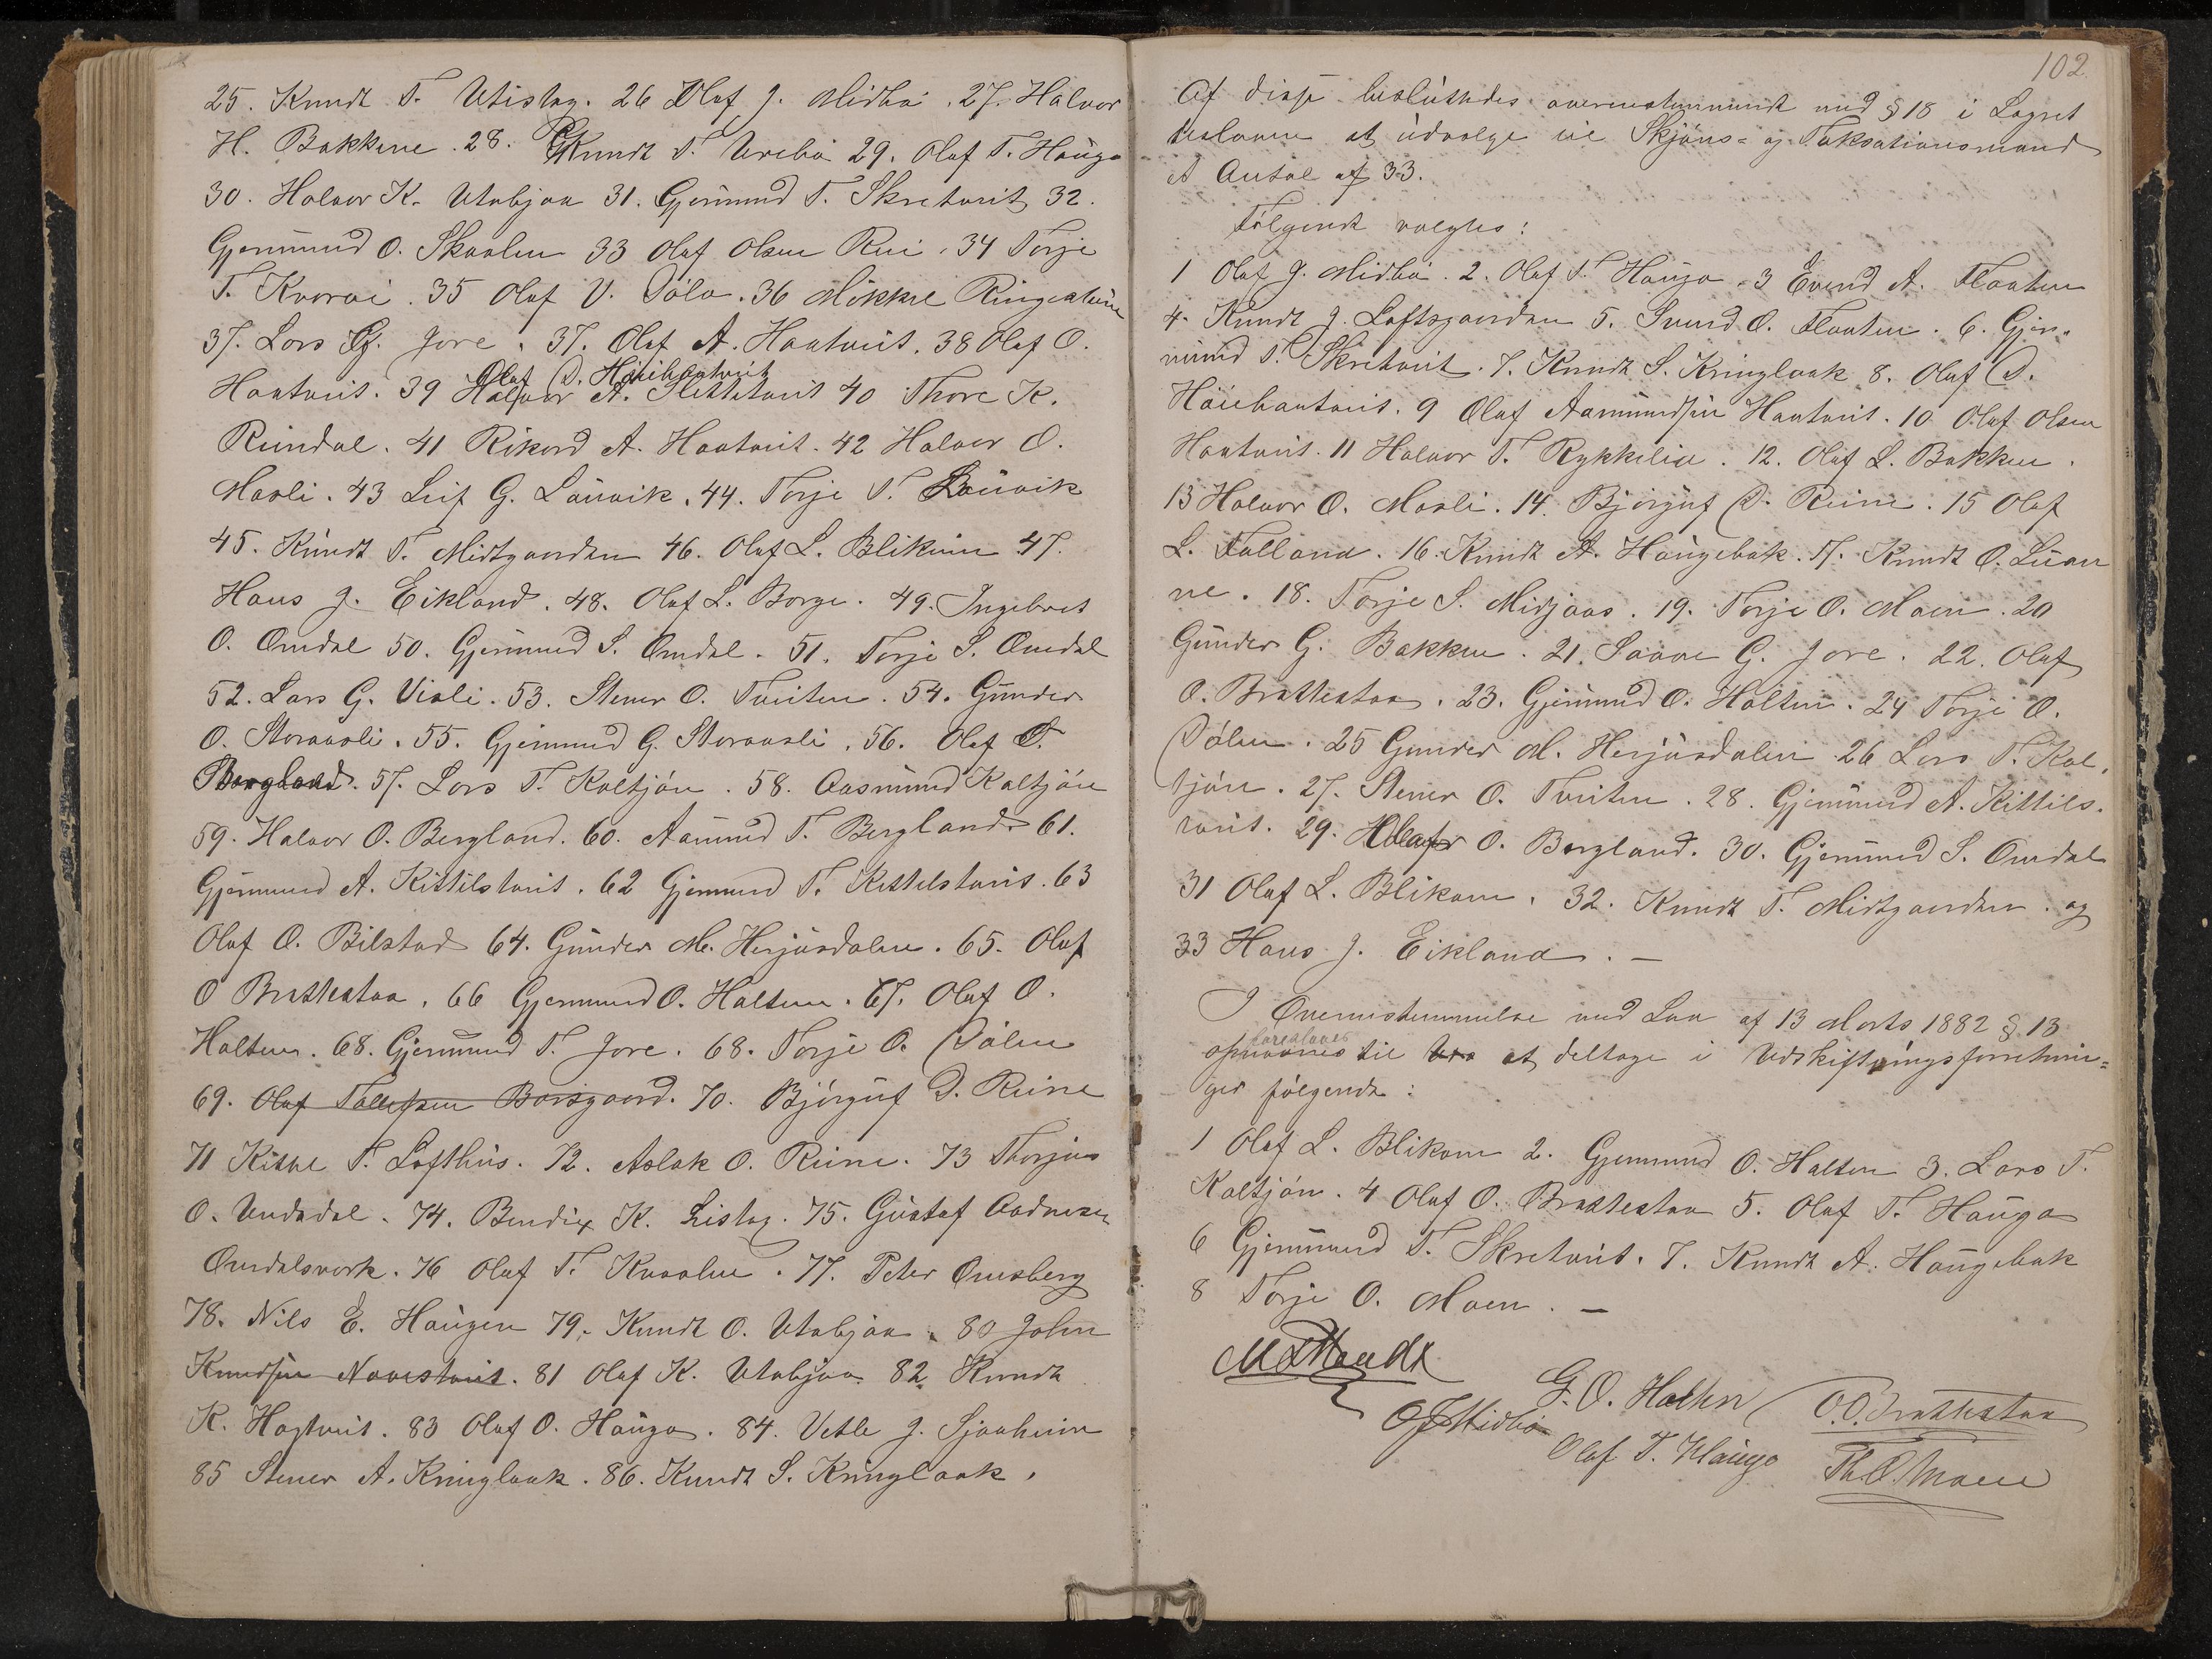 25. Knudt T. Utistog. 26 Olaf J. Midbø. 27. Halvor
H. Bakkene. 28. Knudt T. Urebø 29. Olaf T. Haugo
30. Halvor K. Utabjaa 31. Gjermund T. Skretveit 32.
Gjermund O. Skaalen 33 Olaf Olsen Rui. 34 Torje
T. 35 Olaf V. Döla. 36 Mikkel
37. Lars Gj. Jore. 37. Olaf A. Hautveit. 38 Olaf O.
Olaf D. Höiehautveit
Hautveit. 39 Halvor A. 40 Thore K.
Reindal. 41 Rikord A. Hautveit. 42 Halvor O.
Masli. 43 Leif G. Lauvik. 44. Torje T. Lauvik
45. Knudt T. Midtgaarden 46. Olaf L. Blikum 47.
Hans J. Eikland. 48. Olaf L. Borge. 49. Ingebret
O. Omdal 50. Gjermund S. Omdal. 51. Torje S. Omdal
52. Lars G. Viali. 53. Stener O. Tveiten. 54. Gunder
O. Storaasli. 55. Gjermund G. Storaasli. 56. Olaf T.
Bergland. 57. Lars T. Kaltjön. 58. Aasmund Kaltjön
59. Halvor O. Bergland. 60. Aamund T. Bergland 61.
Gjermund A. Kittilstveit. 62 Gjermund T. Kittilstveit. 63
Olaf O. Bilstad 64. Gunder M. Herjusdalen. 65. Olaf
O Brattestaa. 66 Gjermund O. Halten. 67. Olaf O.
Halten. 68. Gjermund T. Jore. 68. Torje O. Dölen
69. Olaf Tallefsen Boisgaard. 70. Björguf D. Reine
71 Kittel T. Lofthus. 72. Aslak O. Reine. 73 Thorjus
O. Undadal. 74. Bendix K. Listog. 75. Gustaf Aadnesen
Omdalsverk. 76 Olaf T. Kvaalen. 77. Peter Omsberg
78. Nils E. Haugen 79. Knudt O. Utabjaa. 80 John
Knudsen Navestveit. 81 Olaf K. Utabjaa. 82 Knudt
K. Hagtveit. 83 Olaf O. Haugo. 84. Vetle J. Sjaaheim
85 Stener A. Kringlaak. 86. Knudt S. Kringlaak.
102
Af disse besluttedes overensstemmende med § 18 i Lagret
tesloven at udvælge til Skjöns- og Taksationsmænd
et Antal af 33.
Fölgende valgtes:
1 Olaf J. Midbø. 2. Olaf T. Haugo. 3 Evind A. Flaaten
4. Knudt J. Loftsgaarden 5. Svend O. Flaaten. 6. Gjer-
mund T. Skretveit. 7. Knudt S. Kringlaak 8. Olaf D.
Höiehautveit. 9 Olaf Aamundsen Hautveit. 10 Olaf Olsen
Hautveit. 11 Halvor T. Rykkelid. 12. Olaf L. Bakken.
13 Halvor O. Masli. 14. Björguf D. Reine. 15 Olaf
L. Falland. 16. Knudt A. Haugebak. 17. Knudt O. Luan
ne. 18. Torje S. Midjaas. 19. Torje O. Moen. 20
Gunder G. Bakken. 21. Saave G. Jore. 22. Olaf
O. Brattestaa. 23. Gjermund O. Halten. 24 Torje O.
Dölen. 25 Gunder M. Herjusdalen 26 Lars T. Kal-
tjön. 27. Stener O. Tveiten. 28. Gjermund A. Kittils-
tveit. 29. O. Bergland. 30. Gjermund S. Omdal
31 Olaf L. Blikom. 32. Knudt T. Midtgaarden. og
33 Hans J. Eikland. —
I Overensstemmelse med Lov af 13 Marts 1882 § 13
foreslaaes
opnævnes til at deltage i Udskiftningsforretnin=
ger fölgende:
1 Olaf L. Blikom 2. Gjermund O. Halten 3. Lars T.
Kaltjön. 4 Olaf O. Brattestaa 5. Olaf T. Haugo
6 Gjermund T. Skretveit. 7. Knudt A. Haugebak
8 Torje O. Moen. —
G. O. Halten O.O. Brattestaa
OJMidbø Olaf T. Haugo Th.O. Moen